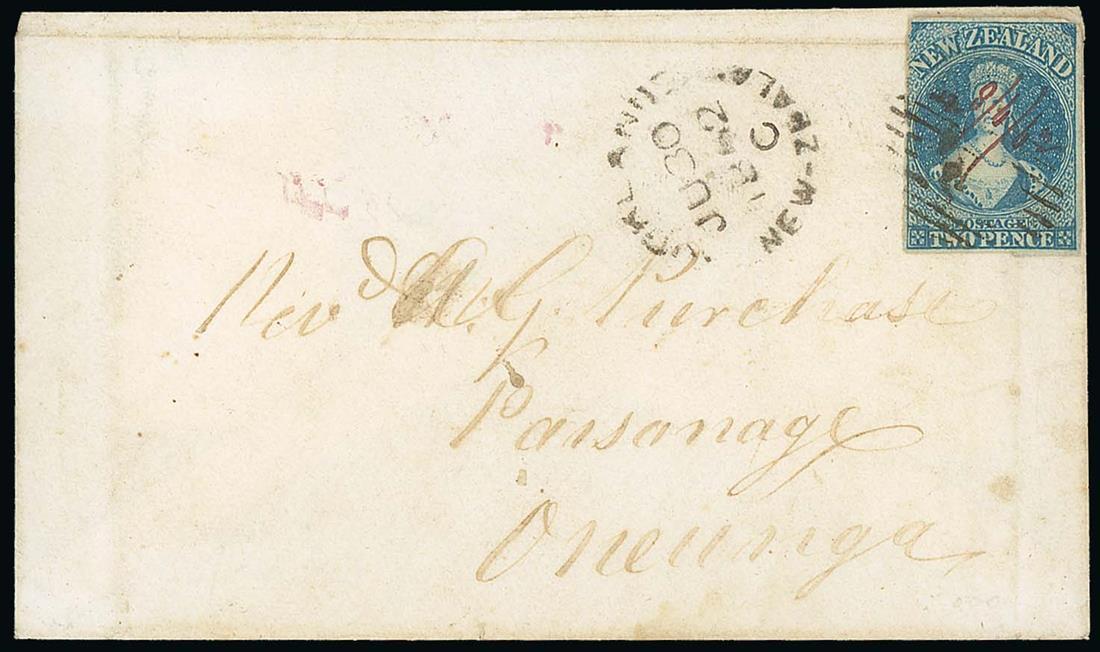 NEW ZEALAND
POSTAGE
TWO PENCE
AUCKLAND
JU 30
1862
C
NEW-ZEALAND
Revd A.G. Purchase
Parsonage
Oneunga